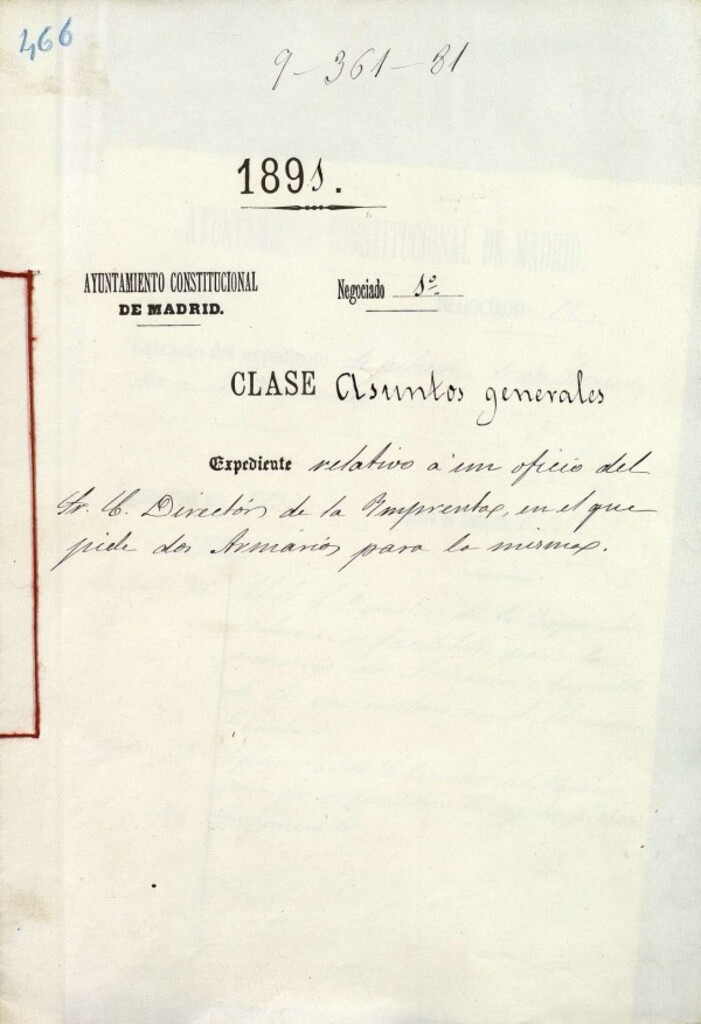 466
9-361-81
1891.
AYUNTAMIENTO CONSTITUCIONAL
DE MADRID.
Negociado 1º
CLASE Asuntos generales
Expediente relativo á un oficio del
Sr. C. Director de la Imprenta, en el que
pide dos Armarios para la misma.